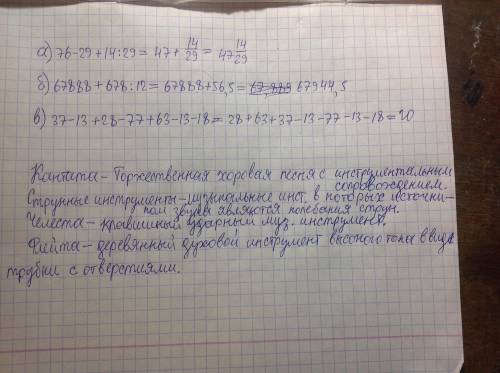 а) 76-29+14:29 = 47 + 14/29 = 47 14/29
б) 67888+678:12 = 67888+56,5 = 67944,5
в) 37-13+28-77+63-13-18 = 28+63+37-13-77-13-18 = 20
Кантата - Торжественная хоровая песня с инструментальным
сопровождением.
Струнные инструменты - музыкальные инст. в которых источни-
ком звуков являются колебания струн.
Челеста - клавишный ударный муз. инструмент.
Флейта - деревянный духовой инструмент высокого тона в виде
трубки с отверстиями.